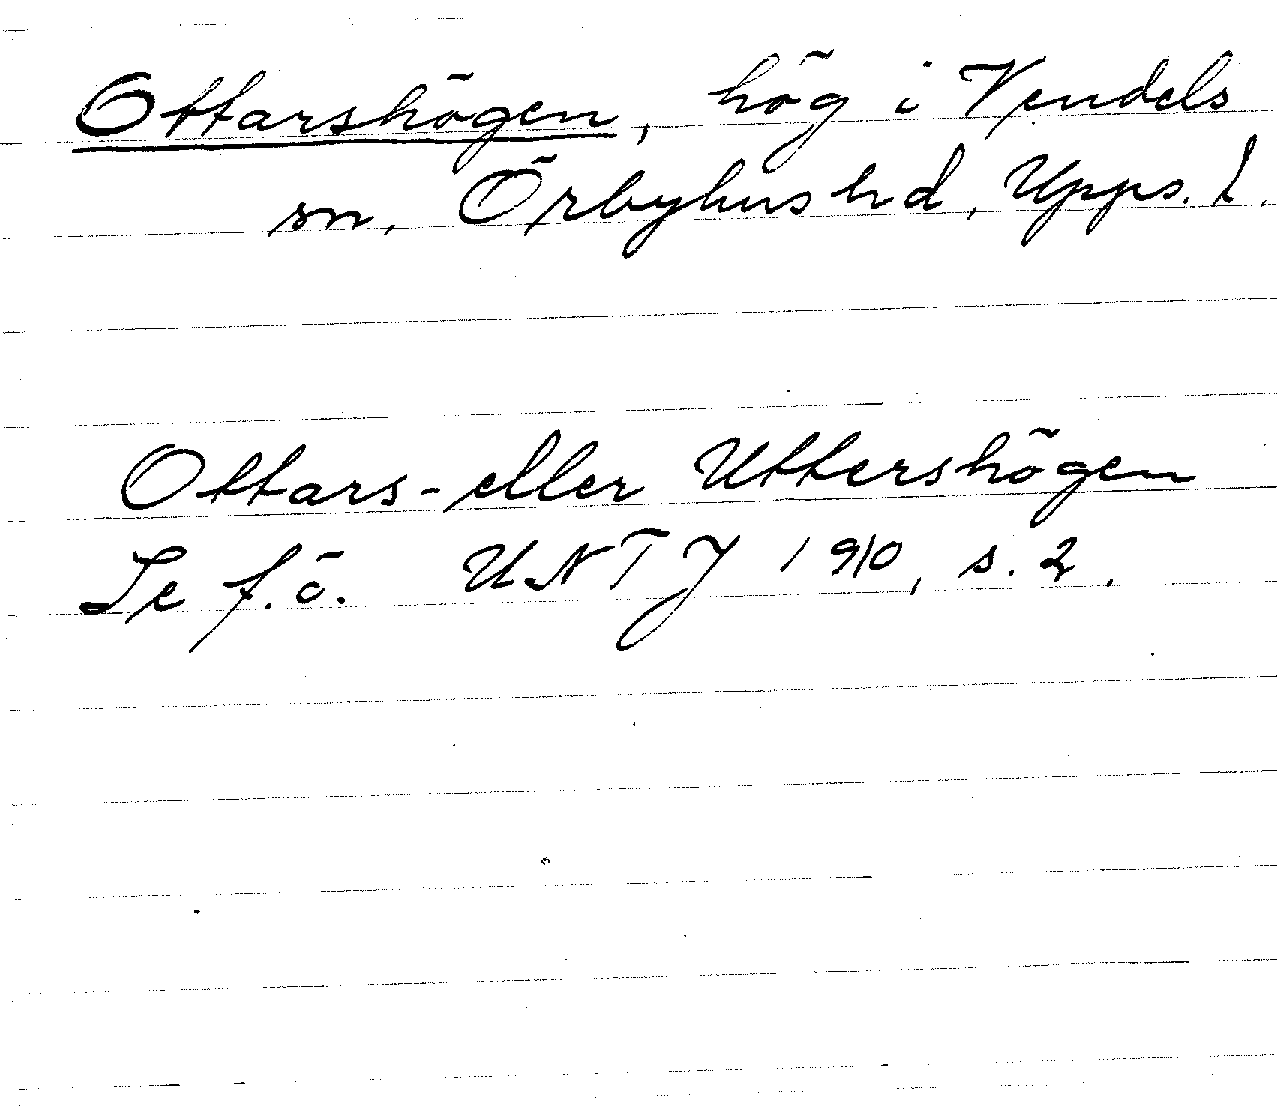 Ottarshögen, hög i Vendels
sn, Örbyhus hd, Upps. l.
Ottars- eller Uttershögen
Se f.ö. UNTJ 1910, s. 2.